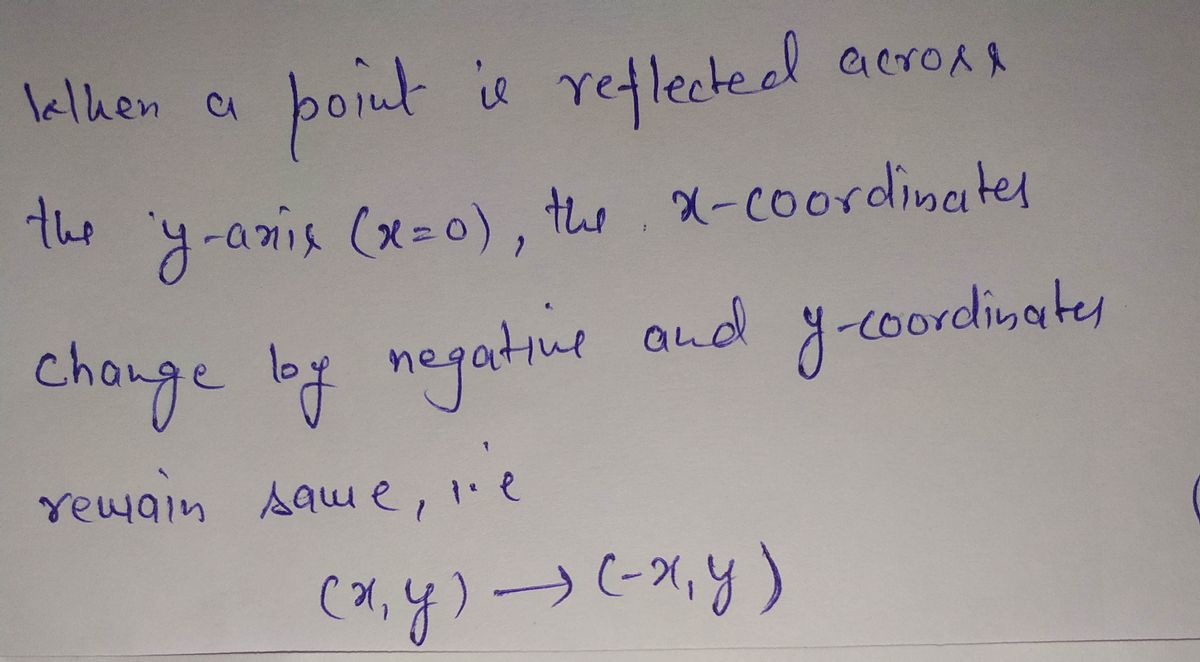 When a point is reflected across
the y-axis (x=0), the x-coordinates
change by negative and y-coordinates
remain same, i.e
(x, y) → (-x, y)